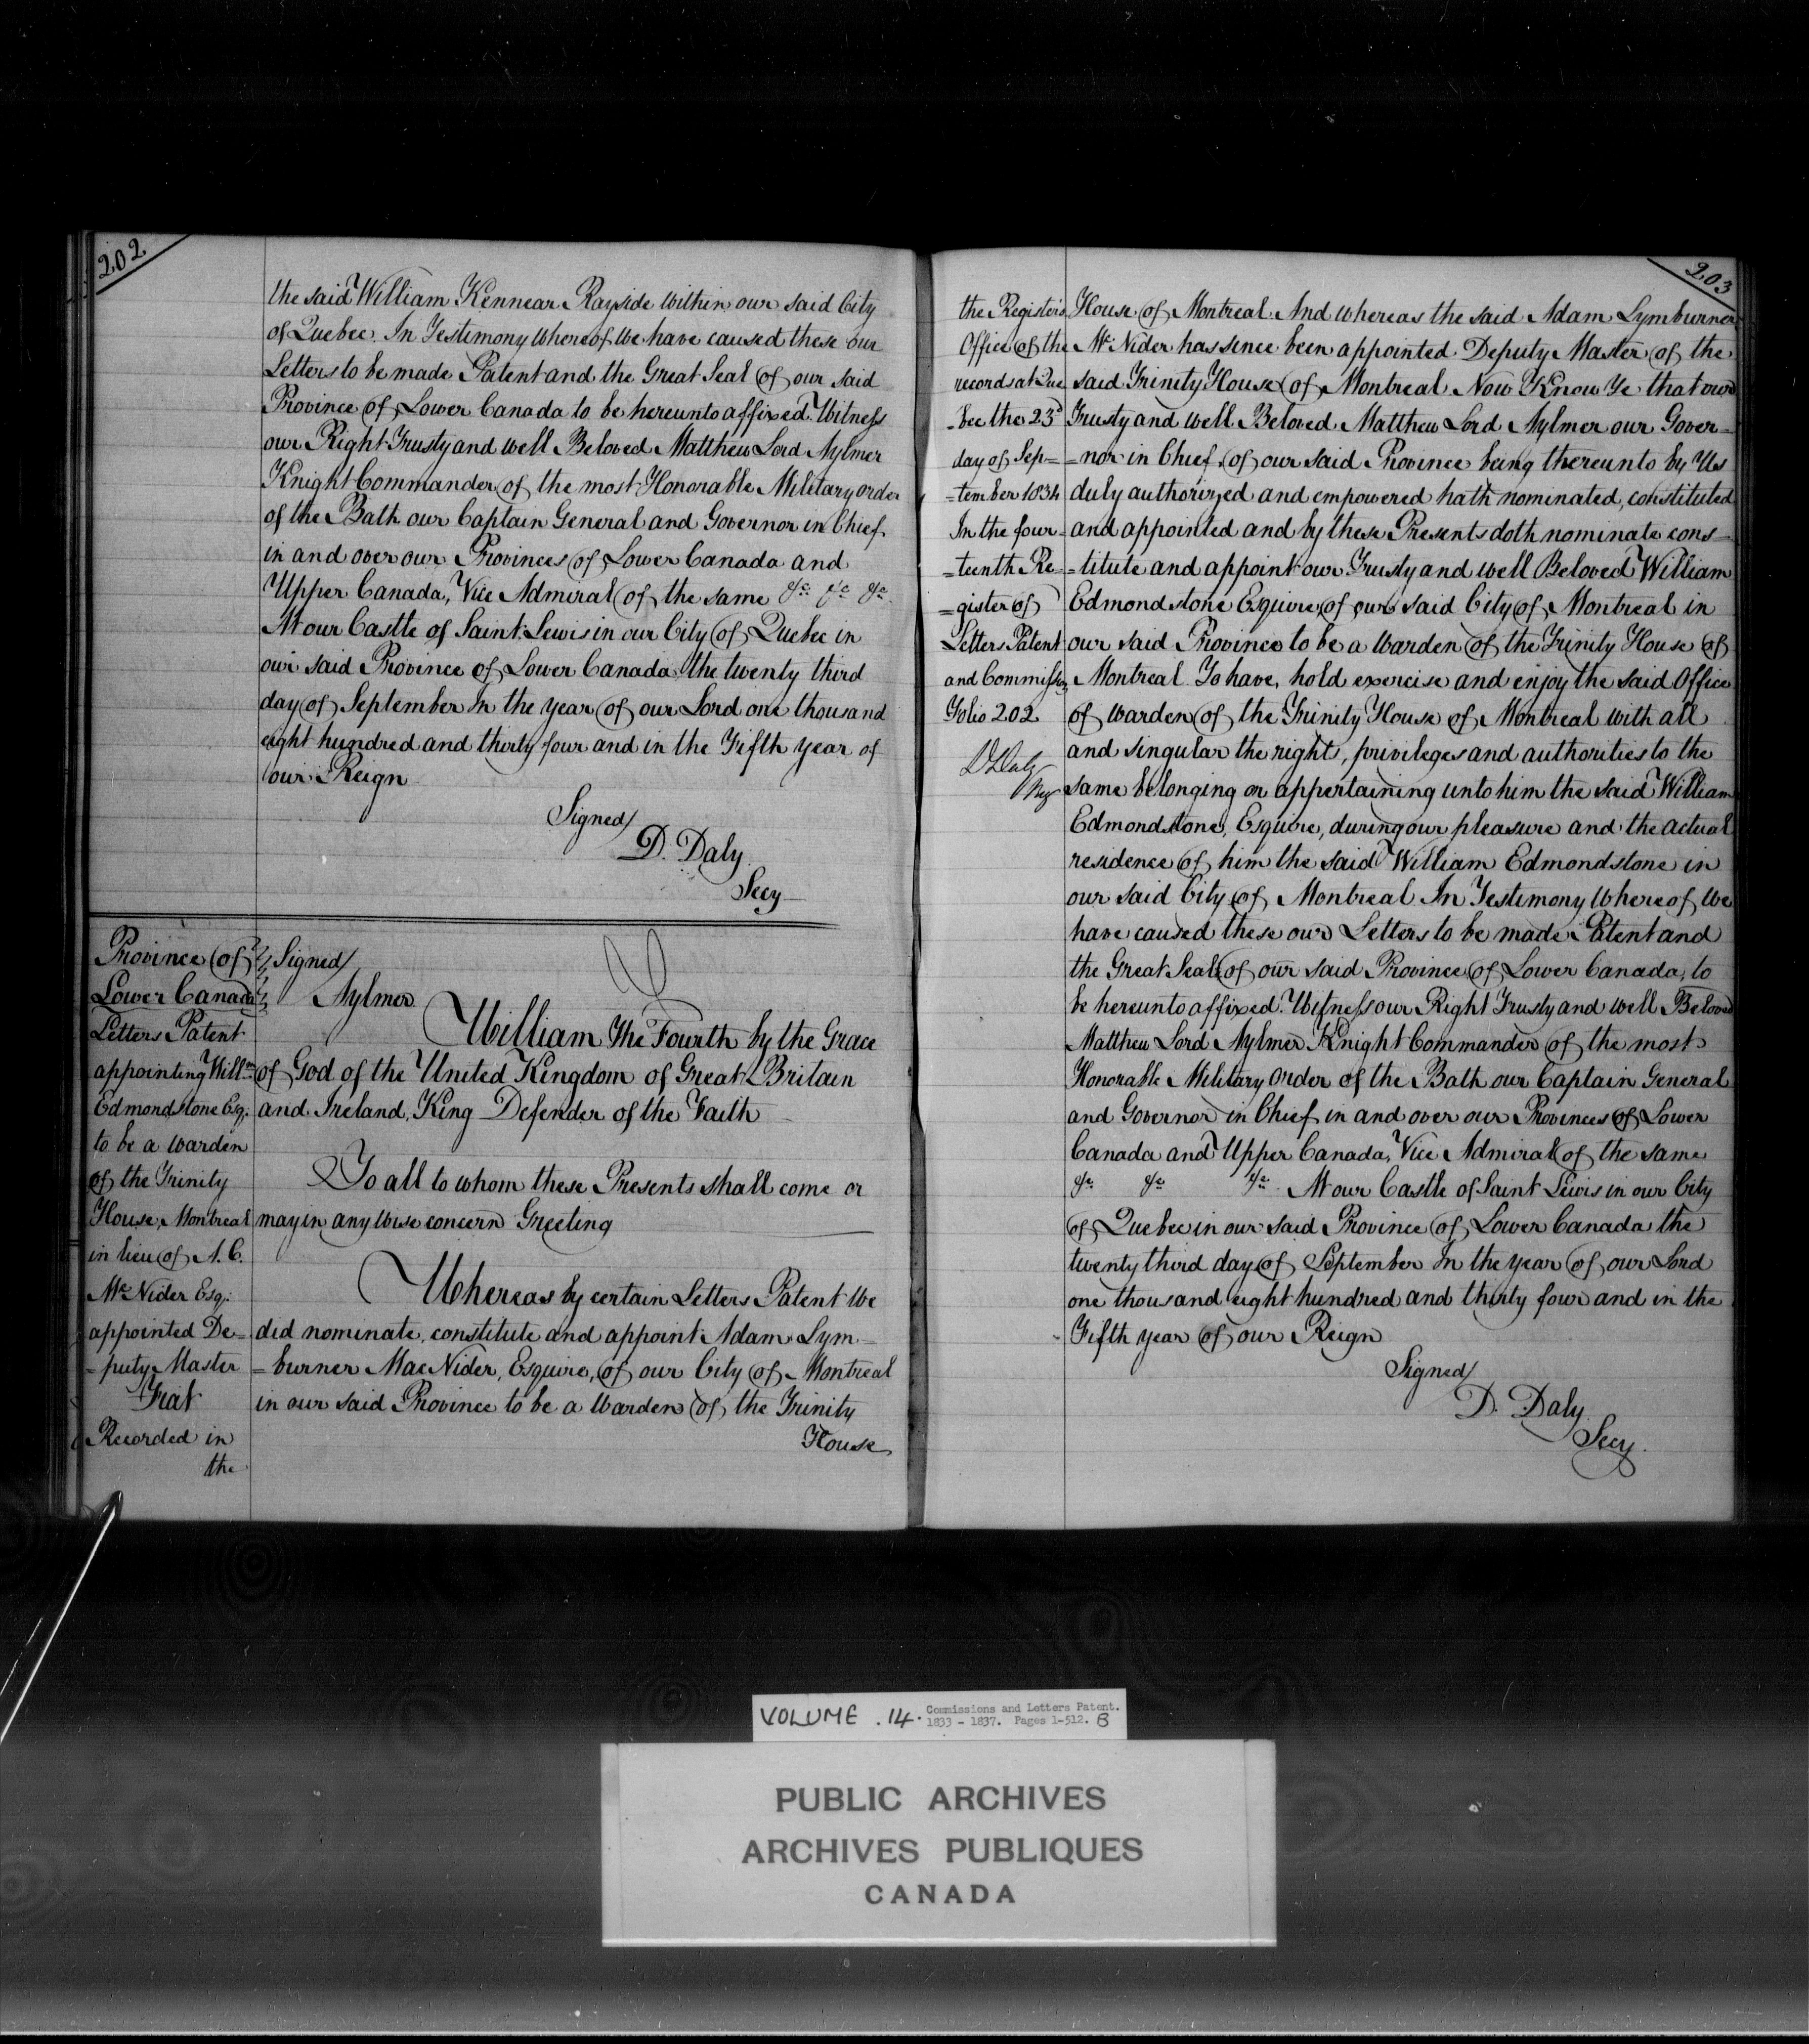 202
the said William Kennear Rayside within our said City
of Quebec. In Testimony whereof we have caused these our
Letters to be made Patent and the Great Seal of our said
Province of Lower Canada to be hereunto affixed. Witness
our Right Trusty and well Beloved Matthew Lord Aylmer
Knight Commander of the most Honorable Military order
of the Bath our Captain General and Governor in Chief
in and over our Provinces of Lower Canada and
Upper Canada, Vice Admiral of the same &c &c &c
At our Castle of Saint Lewis in our City of Quebec in
our said Province of Lower Canada the twenty third
day of September In the year of our Lord one thousand
eight hundred and thirty four and in the Fifth year of
our Reign
Signed/
D. Daly
Secy
Province of
Lower Canada
Letters Patent
appointing Willm
Edmondstone Esq.
to be a warden
of the Trinity
House, Montreal
in lieu of A. C.
Mc Nider Esq.
appointed De-
-puty Master
Fiat
Recorded in
the
Signed/
Aylmer
William the Fourth by the Grace
of God of the United Kingdom of Great Britain
and Ireland, King Defender of the Faith
To all to whom these Presents shall come or
may in any wise concern Greeting
Whereas by certain Letters Patent We
did nominate, constitute and appoint Adam Lym-
=burner MacNider, Esquire, of our City of Montreal
in our said Province to be a Warden of the Trinity
House
203
the Register's
Office of the
records at Que
-bec the 23d
day of Sep-
=tember 1834
In the four-
=teenth Re-
=gister of
Letters Patent
and Commissions
Folio 202
D Daly
Reg
House of Montreal. And whereas the said Adam Lymburner
Mc Nider has since been appointed Deputy Master of the
said Trinity House of Montreal. Now Know Ye that our
Trusty and well Beloved Matthew Lord Aylmer our Gover-
=nor in Chief of our said Province being thereunto by Us
duly authorized and empowered hath nominated, constituted
and appointed and by these Presents doth nominate cons-
=titute and appoint our Trusty and well Beloved William
Edmondstone Esquire, of our said City of Montreal in
our said Province to be a Warden of the Trinity House of
Montreal To have, hold exercise and enjoy the said Office
of Warden of the Trinity House of Montreal with all
and singular the rights, privileges and authorities to the
same belonging or appertaining unto him the said William
Edmondstone, Esquire, during our pleasure and the actual
residence of him the said William Edmondstone in
our said City of Montreal In Testimony Whereof We
have caused these our Letters to be made Patent and
the Great Seal of our said Province of Lower Canada, to
be hereunto affixed. Witness our Right Trusty and well Beloved
Matthew Lord Aylmer Knight Commander of the most
Honorable Military Order of the Bath our Captain General
and Governor in Chief in and over our Provinces of Lower
Canada and Upper Canada, Vice Admiral of the same
&c &c &c At our Castle of Saint Lewis in our City
of Quebec in our said Province of Lower Canada the
twenty third day of September In the year of our Lord
one thousand eight hundred and thirty four and in the
Fifth year of our Reign
Signed/
D. Daly
Secy.
VOLUME 14. Commissions and Letters Patent.
1833 - 1837. Pages 1-512. B
PUBLIC ARCHIVES
ARCHIVES PUBLIQUES
CANADA